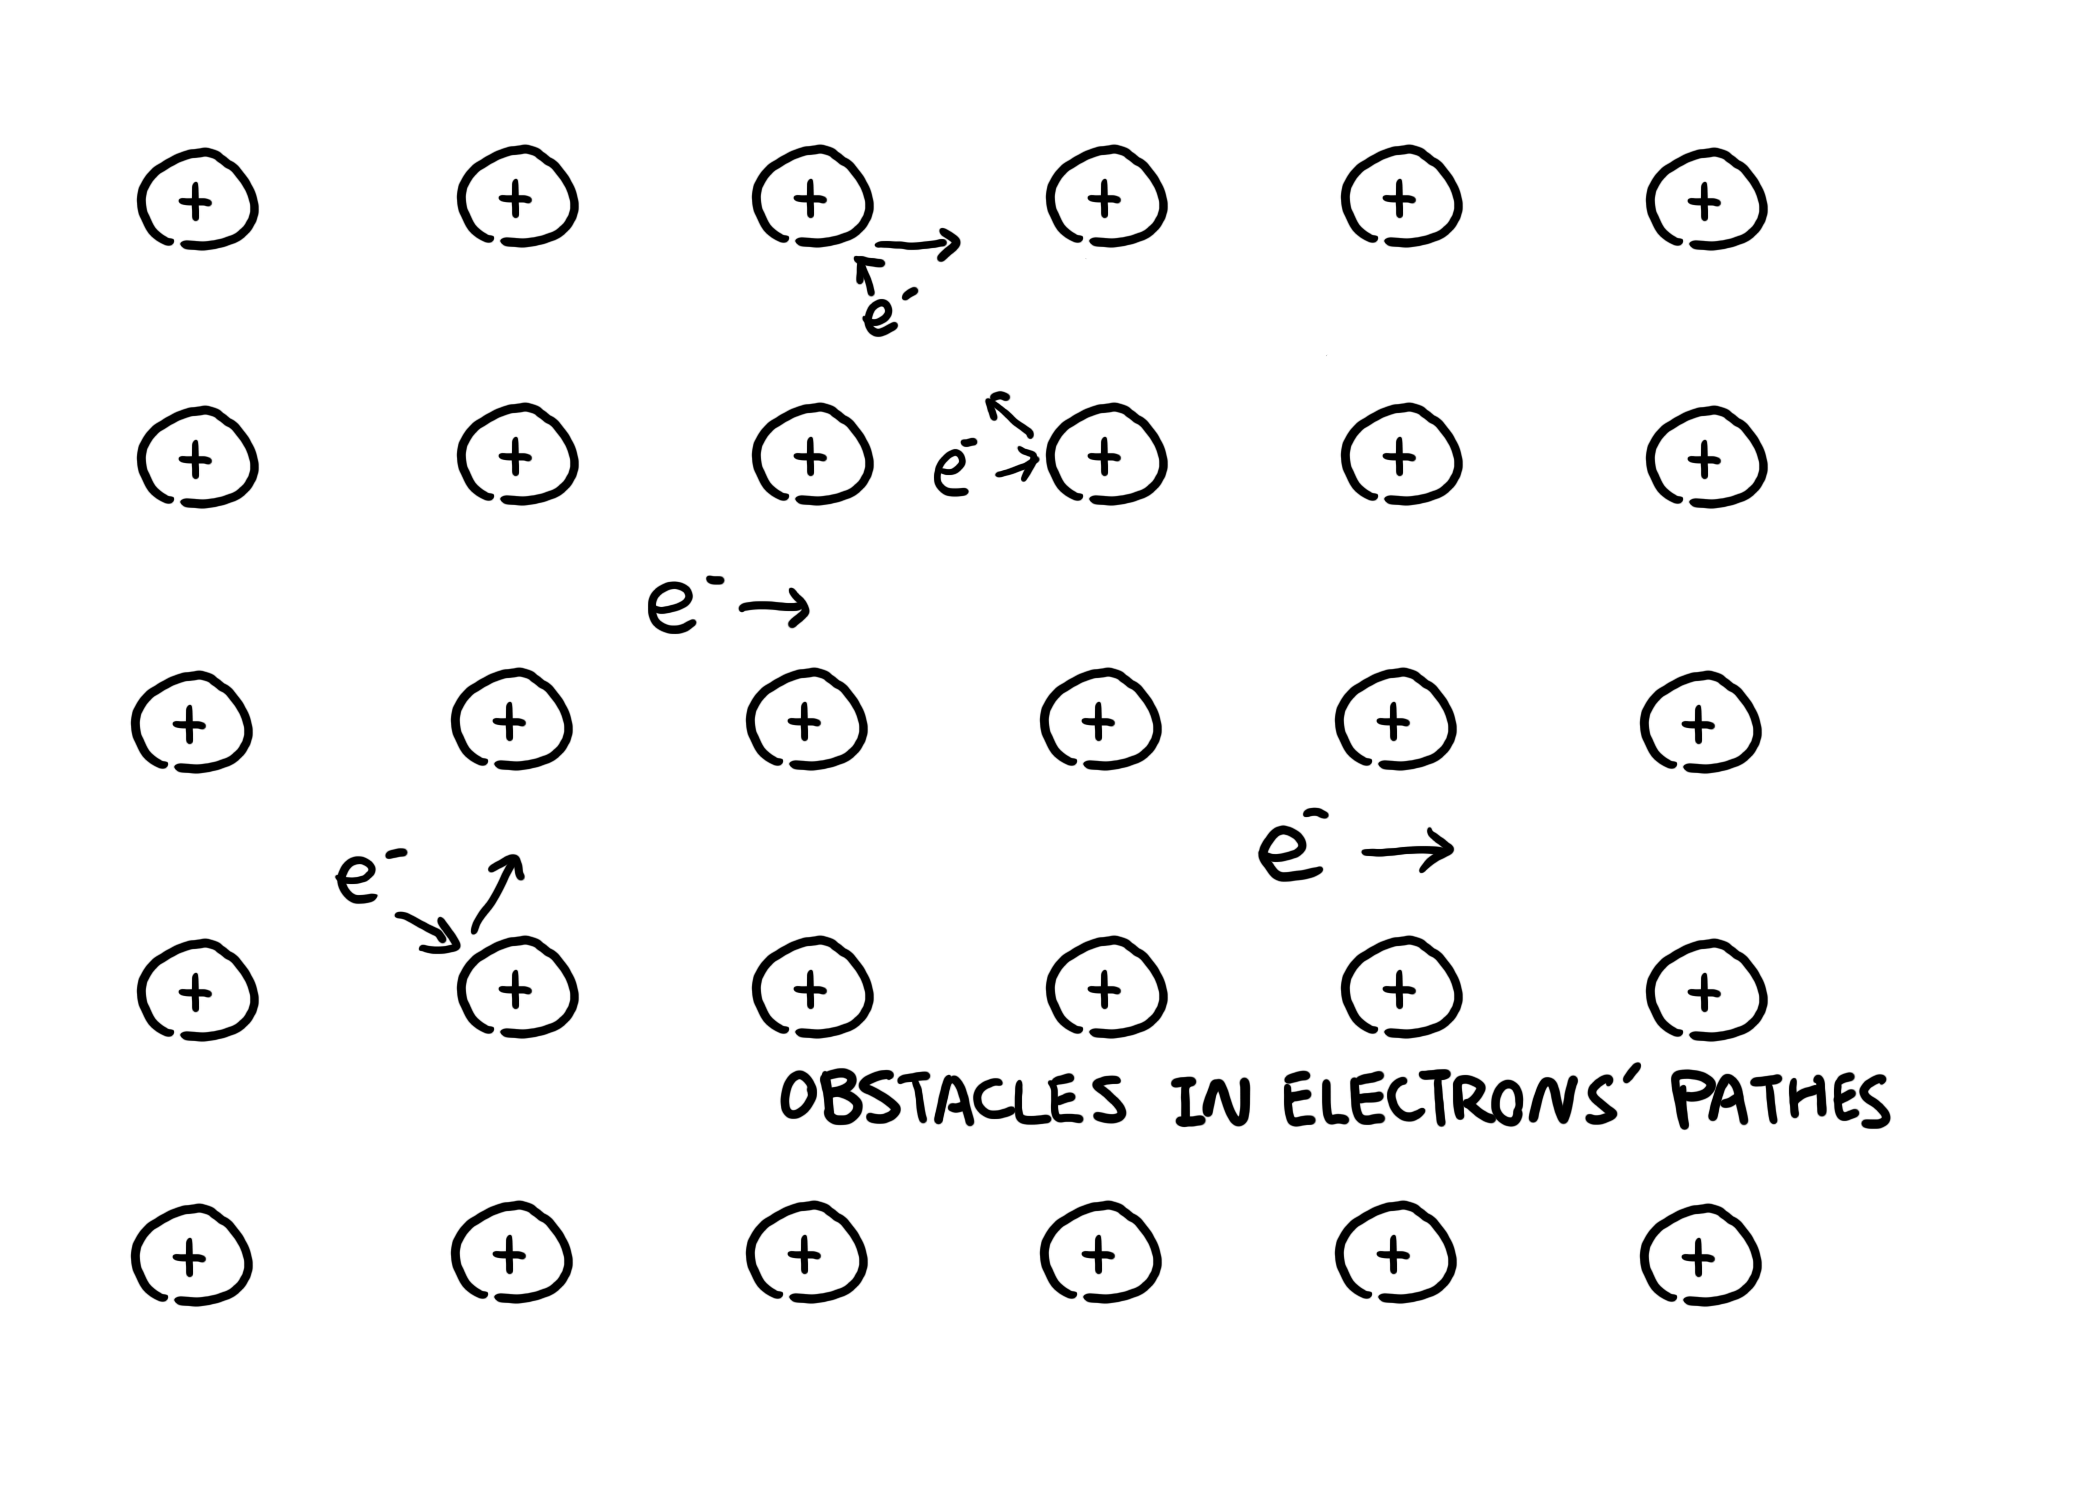 + + + + + +
e⁻
+ + + + + +
e⁻
e⁻
+ + + + + +
e⁻
e⁻
+ + + + + +
OBSTACLES IN ELECTRONS' PATHES
+ + + + + +